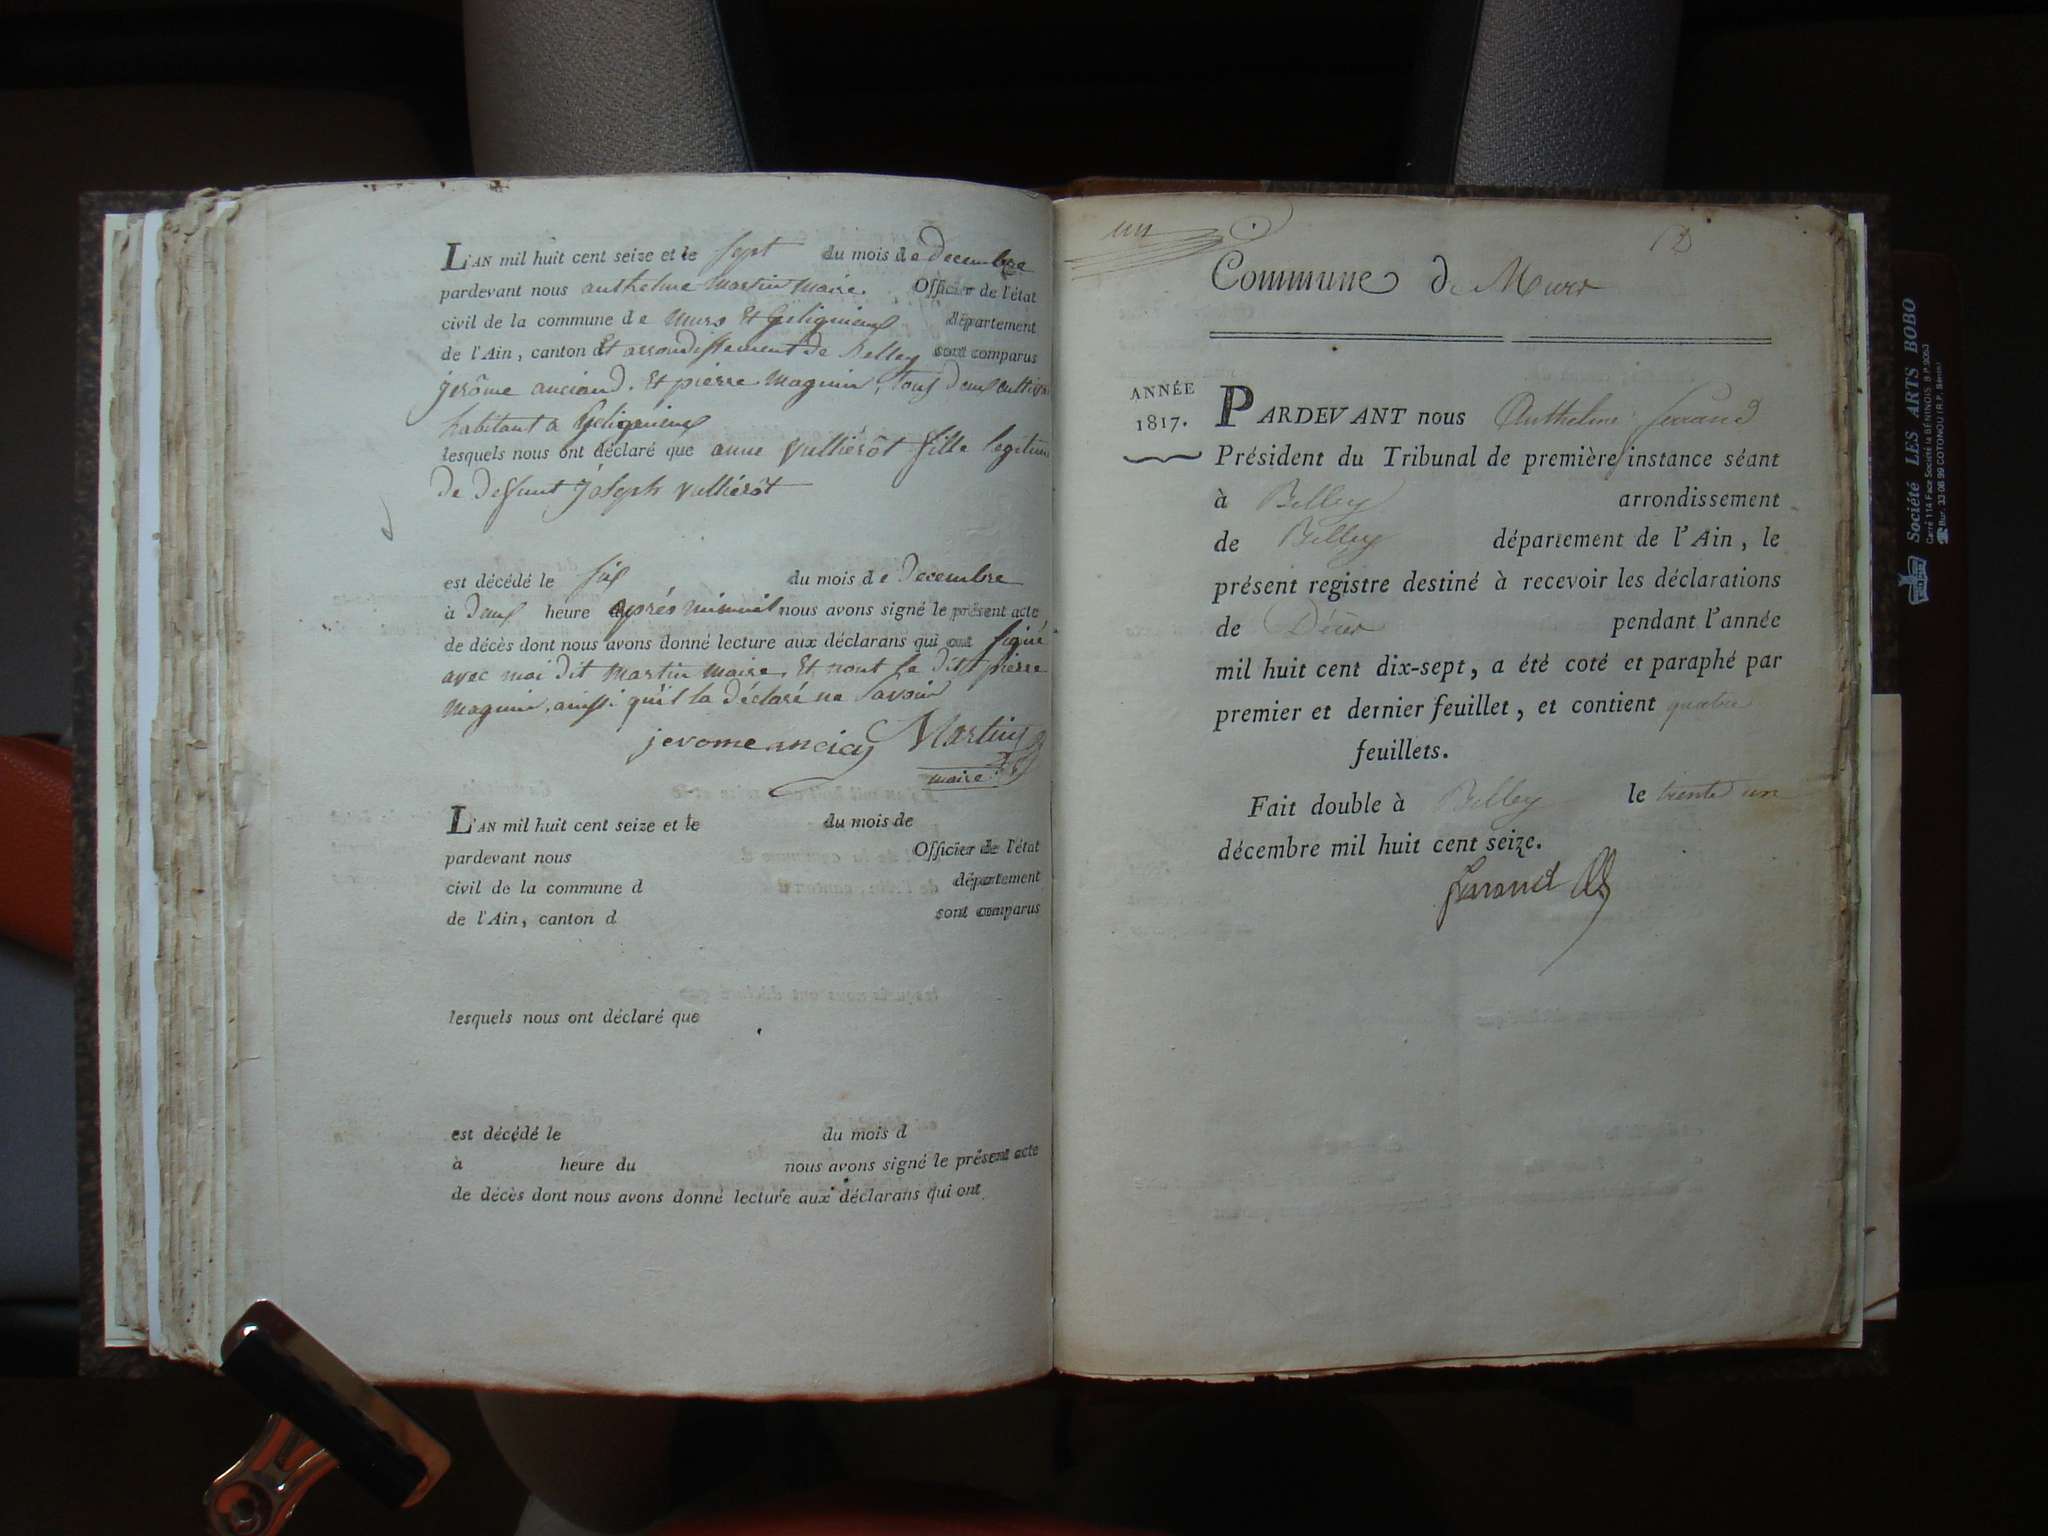 L'AN mil huit cent seize et le sept du mois de decembre
pardevant nous anthelme martin maire. Officier de l'état
civil de la commune de murs Et Geligneux département
de l'Ain, canton Et arrondissement de Belley sont comparus
jerôme anciand. Et pierre maguin, tous deux cultiva
habitant a Geligneux
lesquels nous ont déclaré que anne vulliérôt fille legitime
de deffunt joseph vulliérôt
est décédé le six du mois de decembre
à deux heure après minuit nous avons signé le présent acte
de décès dont nous avons donné lecture aux déclarans qui ont signé
avec moi dit martin maire Et nont le dit pierre
maguin, ainsi qu'il la déclaré ne savoir
jerome anciay Martin
maire
L'AN mil huit cent seize et le du mois de
pardevant nous Officier de l'état
civil de la commune d département
de l'Ain, canton d sont comparus
lesquels nous ont déclaré que
est décédé le du mois d
à heure du nous avons signé le présent acte
de décès dont nous avons donné lecture aux déclarans qui ont
un
Commune de Murs
ANNÉE
1817.
PARDEVANT nous Anthelme ferrand
Président du Tribunal de première instance séant
à Belley arrondissement
de Belley département de l'Ain, le
présent registre destiné à recevoir les déclarations
de Décès pendant l'année
mil huit cent dix-sept, a été coté et paraphé par
premier et dernier feuillet, et contient quatre
feuillets.
Fait double à Belley le trente un
décembre mil huit cent seize.
ferrand
Société LES ARTS BOBO
Carré 114 Face Société la BÉNINOIS B.P. 9053
Bur. 33 08 99 COTONOU (R.P. Bénin)